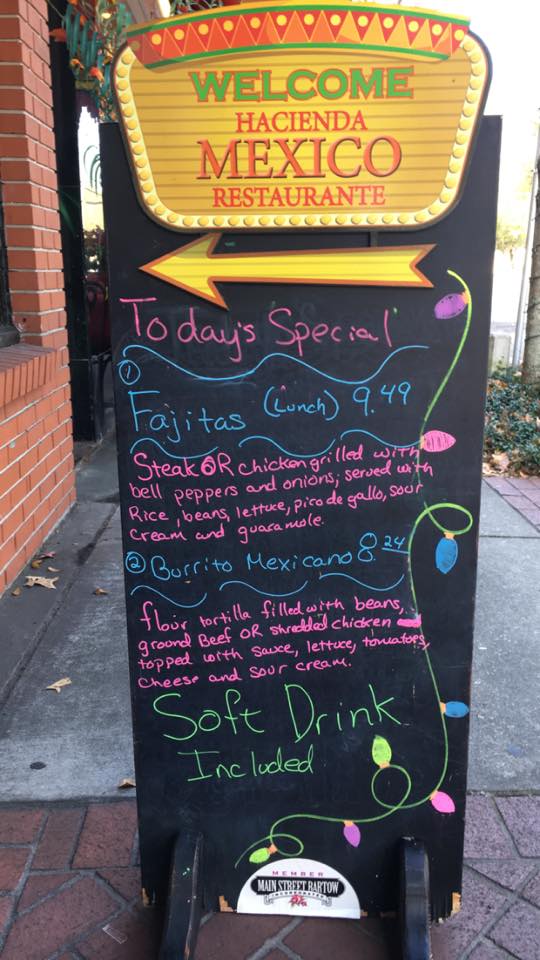 WELCOME
HACIENDA
MEXICO
RESTAURANTE
Today's Special
1
Fajitas (Lunch) 9.49
Steak OR chicken grilled with
bell peppers and onions, served with
Rice, beans, lettuce, pico de gallo, sour
cream and guacamole.
2 Burrito Mexicano 8.24
flour tortilla filled with beans,
ground Beef OR shredded chicken
topped with sauce, lettuce, tomatoes,
cheese and sour cream.
Soft Drink
Included
MEMBER
MAIN STREET BARTOW
INCORPORATED